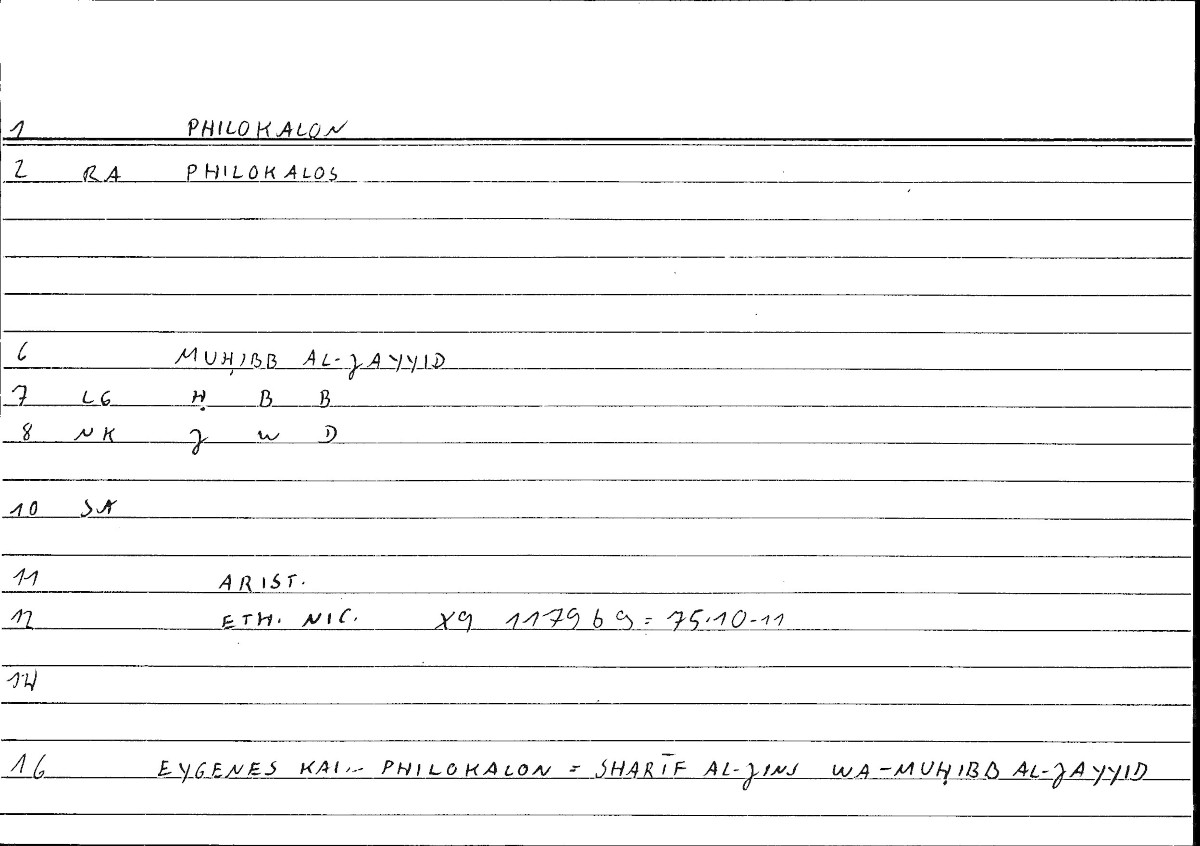 1 PHILOKALON
2 RA PHILOKALOS
6 MUḤIBB AL-JAYYID
7 LG Ḥ B B
8 NK J W D
10 SA
11 ARIST.
12 ETH. NIC. X9 1179 b 9 = 75.10-11
14
16 EYGENES KAI... PHILOKALON = SHARĪF AL-JINS WA-MUḤIBB AL-JAYYID